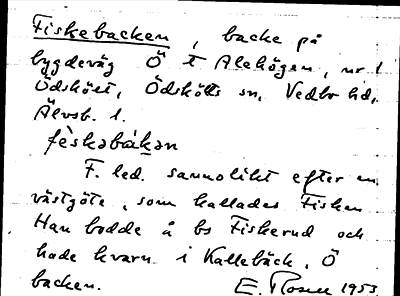 Fiskebacken, backe på
bygdeväg Ö t Alehögen, nr 1
Ödsköet, Ödskölts sn, Vedbo hd,
Älvsb. l.
fèskəbákən
F. led. sannolikt efter en
västgöte, som kallades Fisken
Han bodde å bs Fiskerud och
hade kvarn i Kallebäck, Ö
backen.
E. Rosell 1953